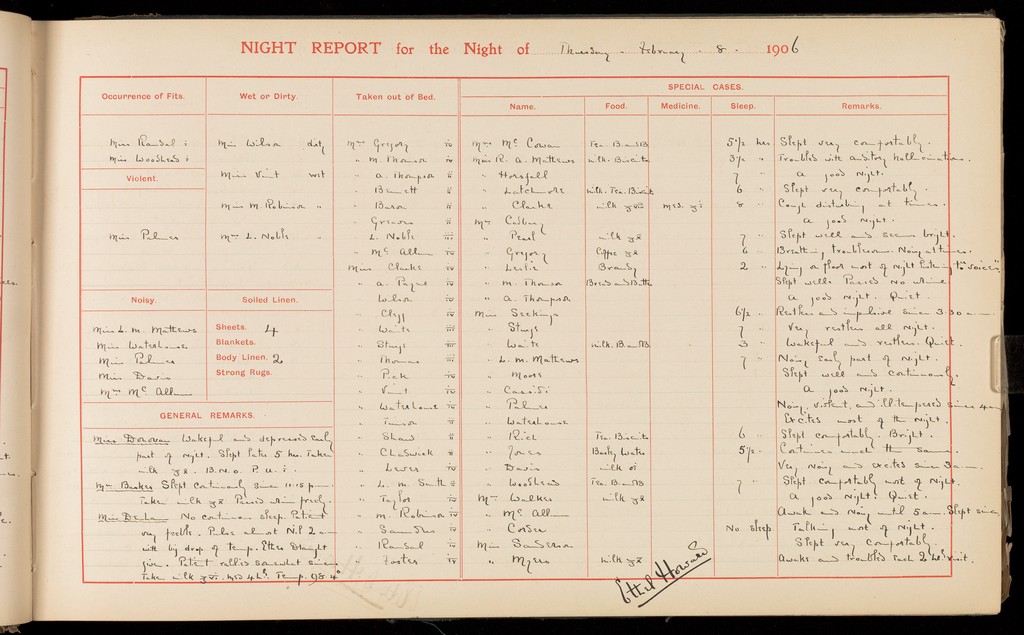 NIGHT REPORT for the Night of Thursday - February - 8 - 1906
Occurrence of Fits.
Miss Randal i
Miss Woodhead i
Violent.
Miss Palmer
Noisy.
Miss L. M. Mathews
Miss Waterhouse
Miss Palmer
Miss Davis
Mrs McAllum
Wet or Dirty.
Miss Wilson dirty
Miss Vint wet
Miss M. Robinson "
Mrs L. Noble "
Soiled Linen.
Sheets. 4
Blankets.
Body Linen. 2
Strong Rugs.
GENERAL REMARKS.
Miss Donovan Wakeful and depressed early
part of night. Slept later 5 hrs. Taken
milk B.N.O. P.U. i.
Mrs Barker Slept continuously since 11.15 p.m.
Taken milk Passed urine freely.
No continuous sleep. Patient
very feeble. Pulse almost Nil 2 am
with big drop of temp. Ether Draught
given. Patient rallied somewhat since
Taken milk Temp. 98.4°
Taken out of Bed.
Mrs Gregory iv
" M. Thomson iv
" A. Thompson ii
" Bennett ii
" Baron ii
" Greaves ii
" L. Noble iii
" McAllum iv
Miss Clarke iv
" A. Payne iv
" Wilson iv
" Clegg iv
" Waite iii
" Sturge iii
" Thomas iii
" Peck iv
" Vint iv
" Waterhouse iv
" iv
" Shaw ii
" Chadwick ii
" Lewer iv
" L. M. Smith ii
" Taylor iv
" M. Robinson iv
" Saunders iv
" Randal iv
" Foster iv
SPECIAL CASES.
Name. Food. Medicine. Sleep. Remarks.
Mrs McCowan Tea. B. and B 5½ hrs. Slept very comfortably.
Miss R. A. Mathews milk. Biscuits 3½ " Troubled with auditory hallucinations.
" Horsfall 7 " A good night.
" Latchmore milk. Tea. Biscuits 6 " Slept very comfortably.
" Clarke milk Med. 8 " Cough disturbing at times.
Mrs Cadbury A good night.
" Pearl milk 7 " Slept well and seems bright.
" Gregory Coffee 6 " Breathing troublesome. Noisy at times.
" Leslie Brandy 2 " Lying on floor most of night listening to "voices".
" M. Thomson Bread and Butter Slept well. Passed no urine
" A. Thompson A good night. Quiet.
Miss Seekings 6½ " Restless and impulsive since 3.30 am
" Sturge 7 " Very restless all night.
" Waite milk. B. and B 3 " Wakeful and restless. Quiet.
" L. M. Mathews 7 " Noisy early part of night.
" Moors Slept well and continuously.
" Cassidi A good night.
" Palmer Noisy, violent, and ill-tempered since 4 am
" Waterhouse Excited most of the night.
" Rich Tea. Biscuits 6 " Slept comfortably. Bright.
" Jones Barley Water 5½ " Continues much the same.
" Davis milk Very noisy and excited since 3 am.
" Woodhead Tea. B. and B 7 " Slept comfortably most of night.
Mrs Walker milk A good night. Quiet.
" McAllum Awake and noisy until 5 am. Slept since.
" Corder No sleep Talking most of night.
Miss Sanderson Slept very comfortably.
" Myers milk Awake and troubled each 2 hrs visit.
Ethel Howard